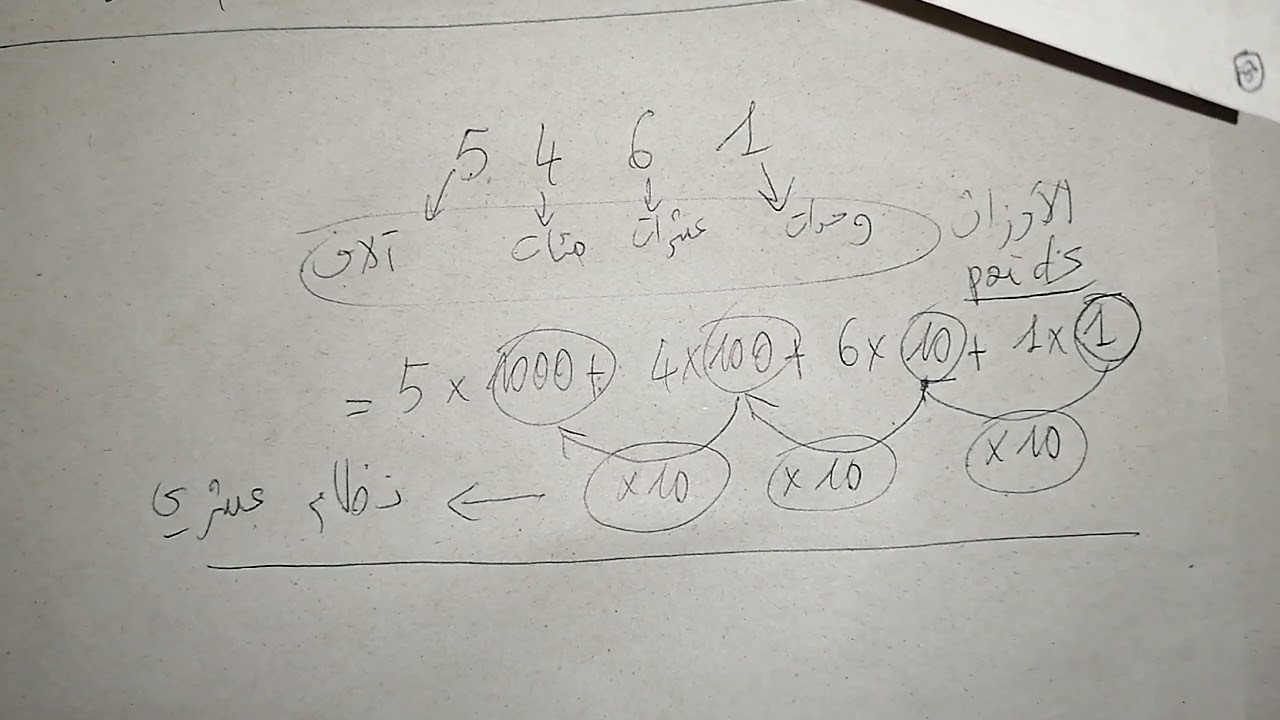 5 4 6 1
آلاف مئات عشرات وحدات الأوزان
poids
= 5 × 1000 + 4 × 100 + 6 × 10 + 1 × 1
×10 ×10 ×10
نظام عشري